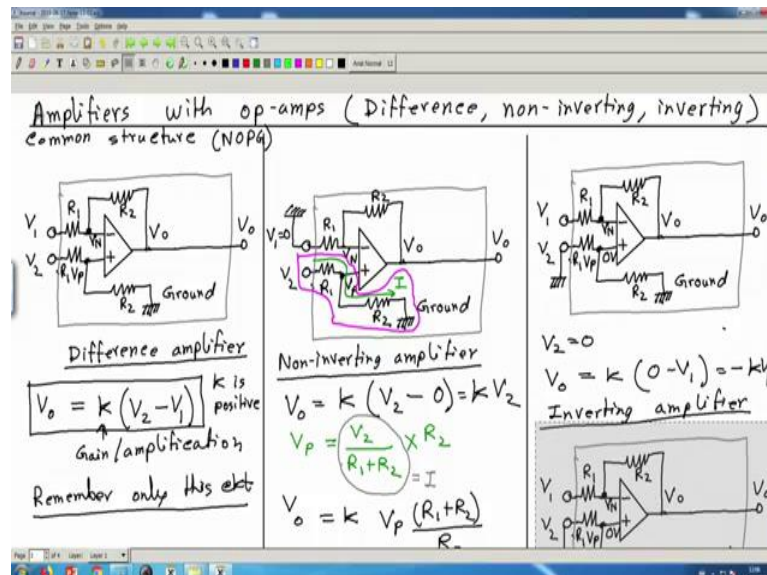 File Edit View Page Tools Options Help
Amplifiers with op-amps (Difference, non-inverting, inverting)
Common structure (NOPG)
V₁
R₁
R₂
V_N
V₀
V₀
V₂
R₁
V_P
R₂
Ground
Difference amplifier
V₀ = k (V₂-V₁)
k is
positive
Gain/amplification
Remember only this ckt
R₂
V₁=0
R₁
V_N
V₀
V₀
V₂
R₁
V_P
I
R₂
Ground
Non-inverting amplifier
V₀ = k (V₂ - 0) = kV₂
V_P = V₂/(R₁+R₂) × R₂
= I
V₀ = k V_P (R₁+R₂)
V₁
R₁
R₂
V_N
V₀
V₀
V₂
R₁
V_P
0V
R₂
Ground
V₂=0
V₀ = k (0-V₁) = -kV
Inverting amplifier
V₁
R₁
R₂
V_N
V₀
V₂
R₁
V_P
0V
Page 1 of 4 Layer: Layer 1